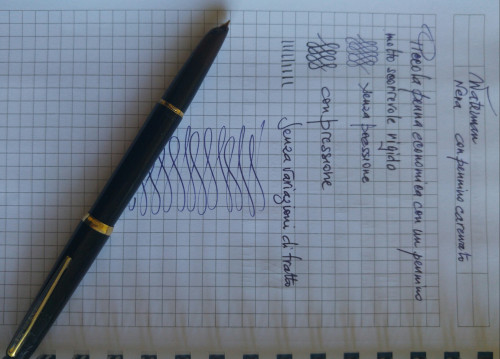 Waterman
Nera con pennino carenato
Piccola penna economica con un pennino
molto scorrevole rigido
senza pressione
con pressione
senza variazioni di tratto